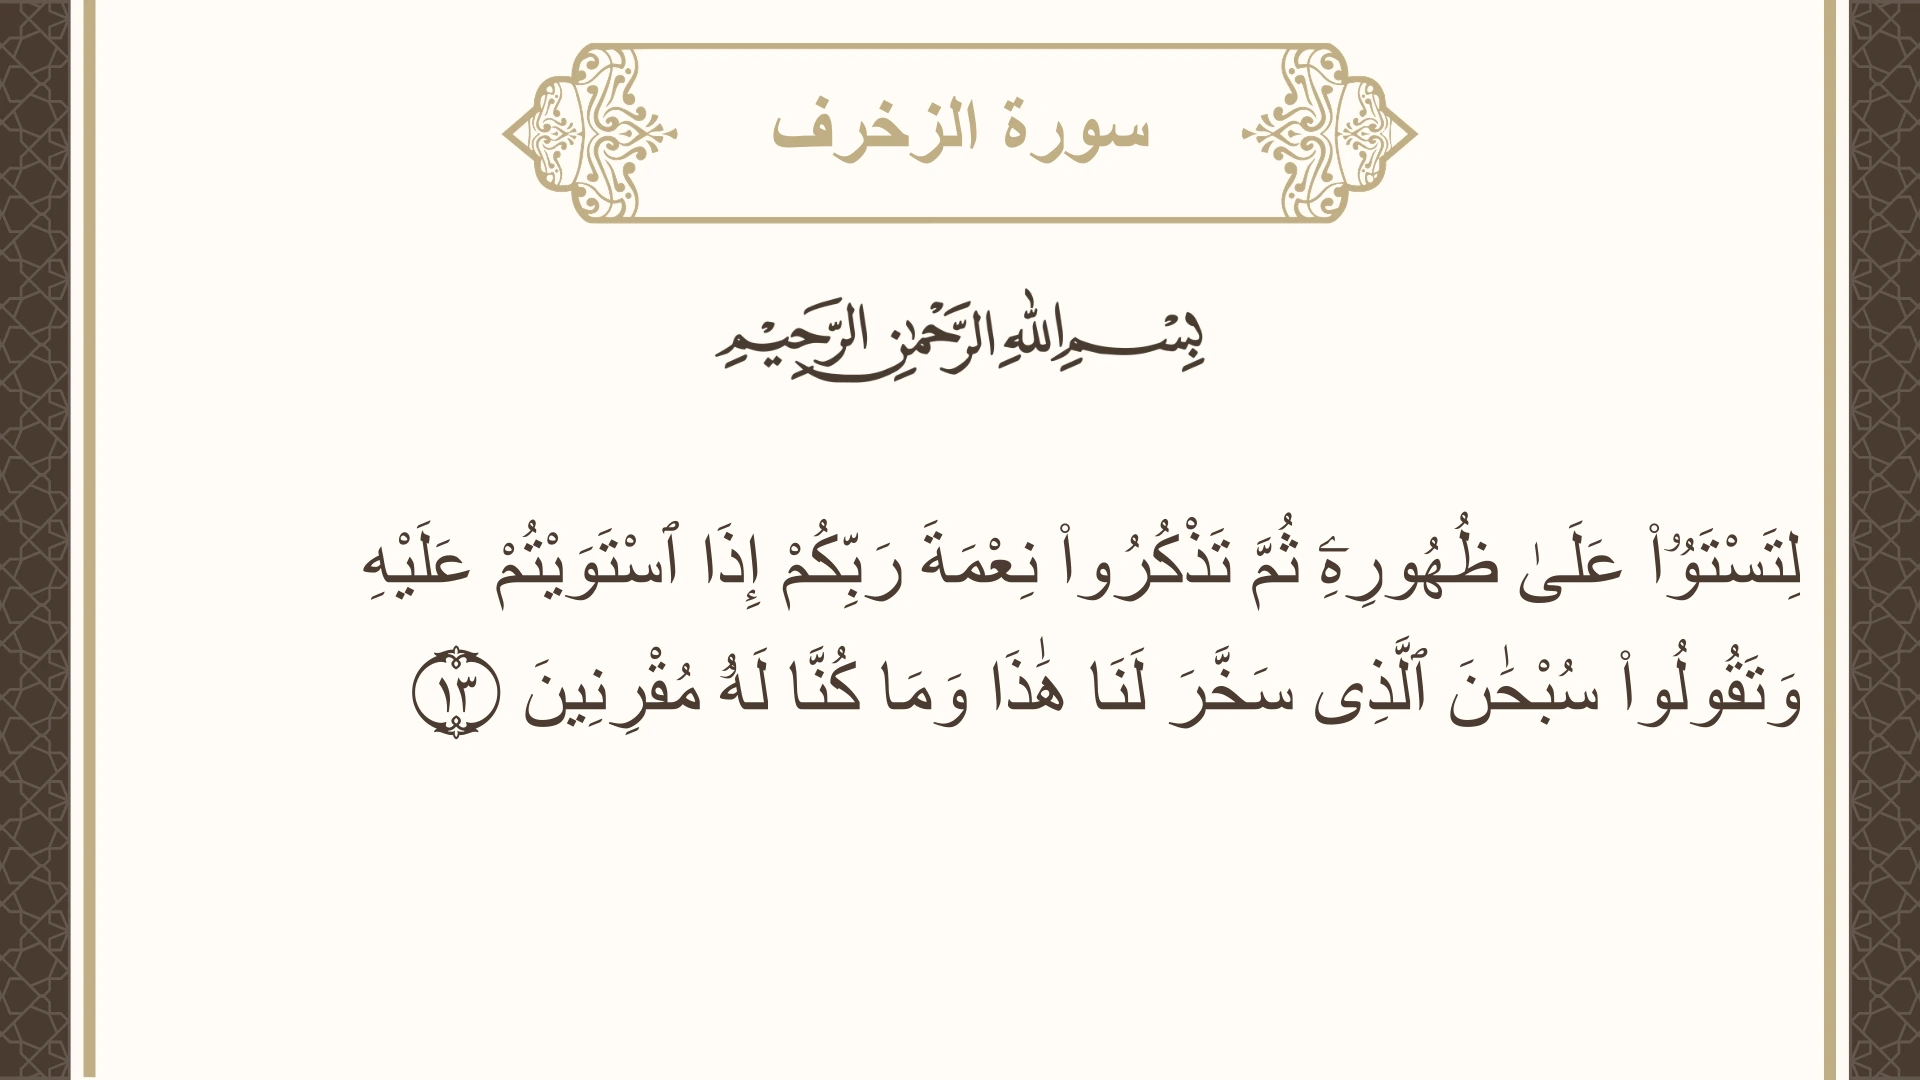 سورة الزخرف
بِسْمِ اللهِ الرَّحْمٰنِ الرَّحِيْمِ
لِتَسْتَوُۥا۟ عَلَىٰ ظُهُورِهِۦ ثُمَّ تَذْكُرُوا۟ نِعْمَةَ رَبِّكُمْ إِذَا ٱسْتَوَيْتُمْ عَلَيْهِ
وَتَقُولُوا۟ سُبْحَٰنَ ٱلَّذِى سَخَّرَ لَنَا هَٰذَا وَمَا كُنَّا لَهُۥ مُقْرِنِينَ ١٣